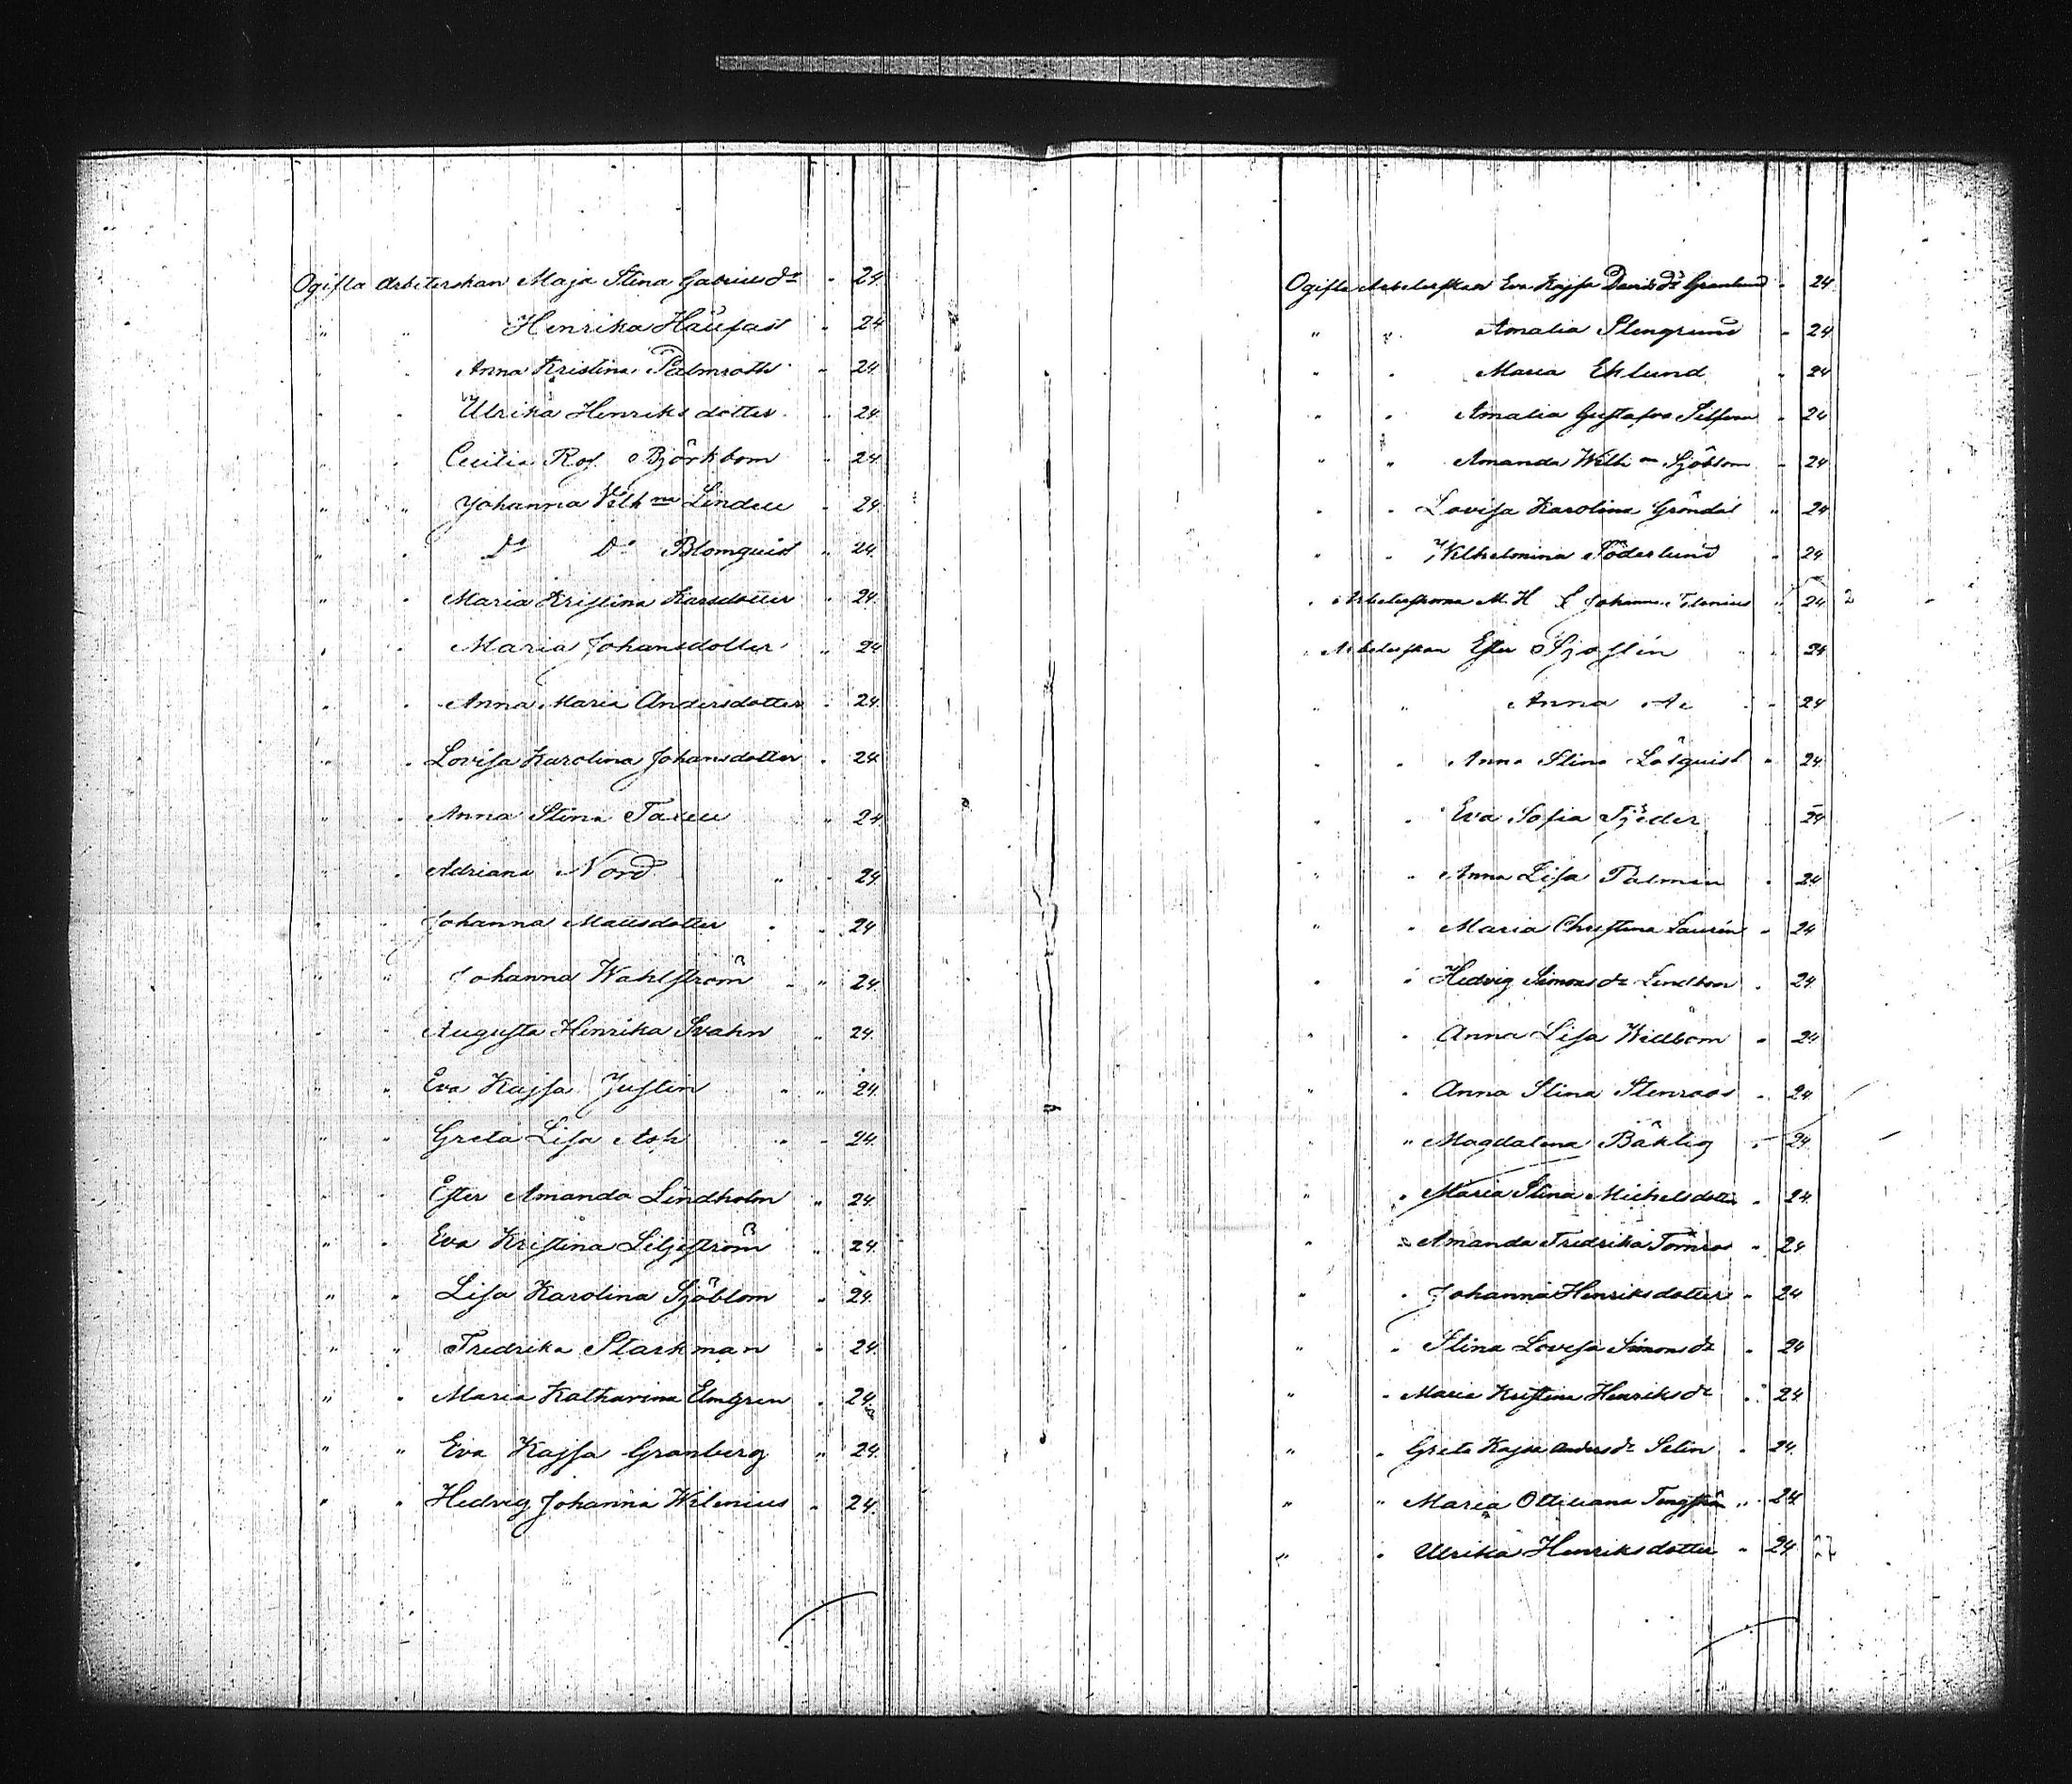 Ogifta Arbeterskan Maja Stina Gabriels dr " 24
" " Henrika " 24
" " Anna Kristina Palmroth " 24
" " Ulrika Henriksdotter " 24
" " Cecilia Ros. Björkbom " 24
" " Johanna Vilh na Lindell " 24
" " Do Do Blomquist " 24
" " Maria Kristina Karlsdotter " 24
" " Maria Johansdotter " 24
" " Anna Maria Andersdotter " 24
" " Lovisa Karolina Johansdotter " 24
" " Anna Stina Taxell " 24
" " Adriana Nord " " 24
" " Johanna Mattsdotter " " 24
" " Johanna Wahlström " " 24
" " Augusta Henrika Svahn " 24
" " Eva Kajsa Justin " " 24
" " Greta Lisa Ask " " 24
" " Ester Amanda Lindholm " 24
" " Eva Kristina Liljeström " 24
" " Lisa Karolina Sjöblom " 24
" " Fredrika Starkman " 24
" " Maria Katharina Elmgren " 24
" " Eva Kajsa Granberg " 24
" " Hedvig Johanna Wilenius " 24
Ogifta Arbeterskan Eva Kajsa Davids dr Granlund " 24
" " Amalia Stengrund " 24
" " Maria Eklund " 24
" " Amalia Gustafva " 24
" " Amanda Wilh na Sjöblom " 24
" " Lovisa Karolina Gröndal " 24
" " Wilhelmina Söderlund " 24
" Arbeterskorna M. H. & Johanna " 24 2
" Arbeterskan Ester Sjöstén " " 24
" " Anna " " 24
" " Anna Stina Löfquist " 24
" " Eva Sofia Tjeder " 24
" " Anna Lisa Palmén " 24
" " Maria Christina Laurén " 24
" " Hedvig Simons dr Lindbom " 24
" " Anna Lisa Killbom " 24
" " Anna Stina Stenroos " 24
" " Magdalena Bäklig " 24
" " Maria Stina Michelsdotter " 24
" " Amanda Fredrika Törnros " 24
" " Johanna Henriksdotter " 24
" " Stina Lovisa Simons dr " 24
" " Maria Kristina Henriks dr " 24
" " Greta Kajsa Anders dr Selin " 24
" " Maria Ottiliana Tengström " 24
" " Ulrika Henriksdotter " 24